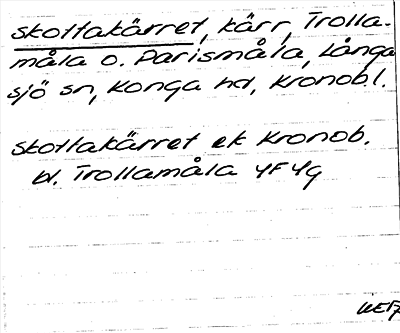 Skottakärret, kärr, Trolla-
måla o. Parismåla, Långa
sjö sn, Konga hd, Kronob.l.
Skottakärret ek Kronob.
bl. Trollamåla 4F4g